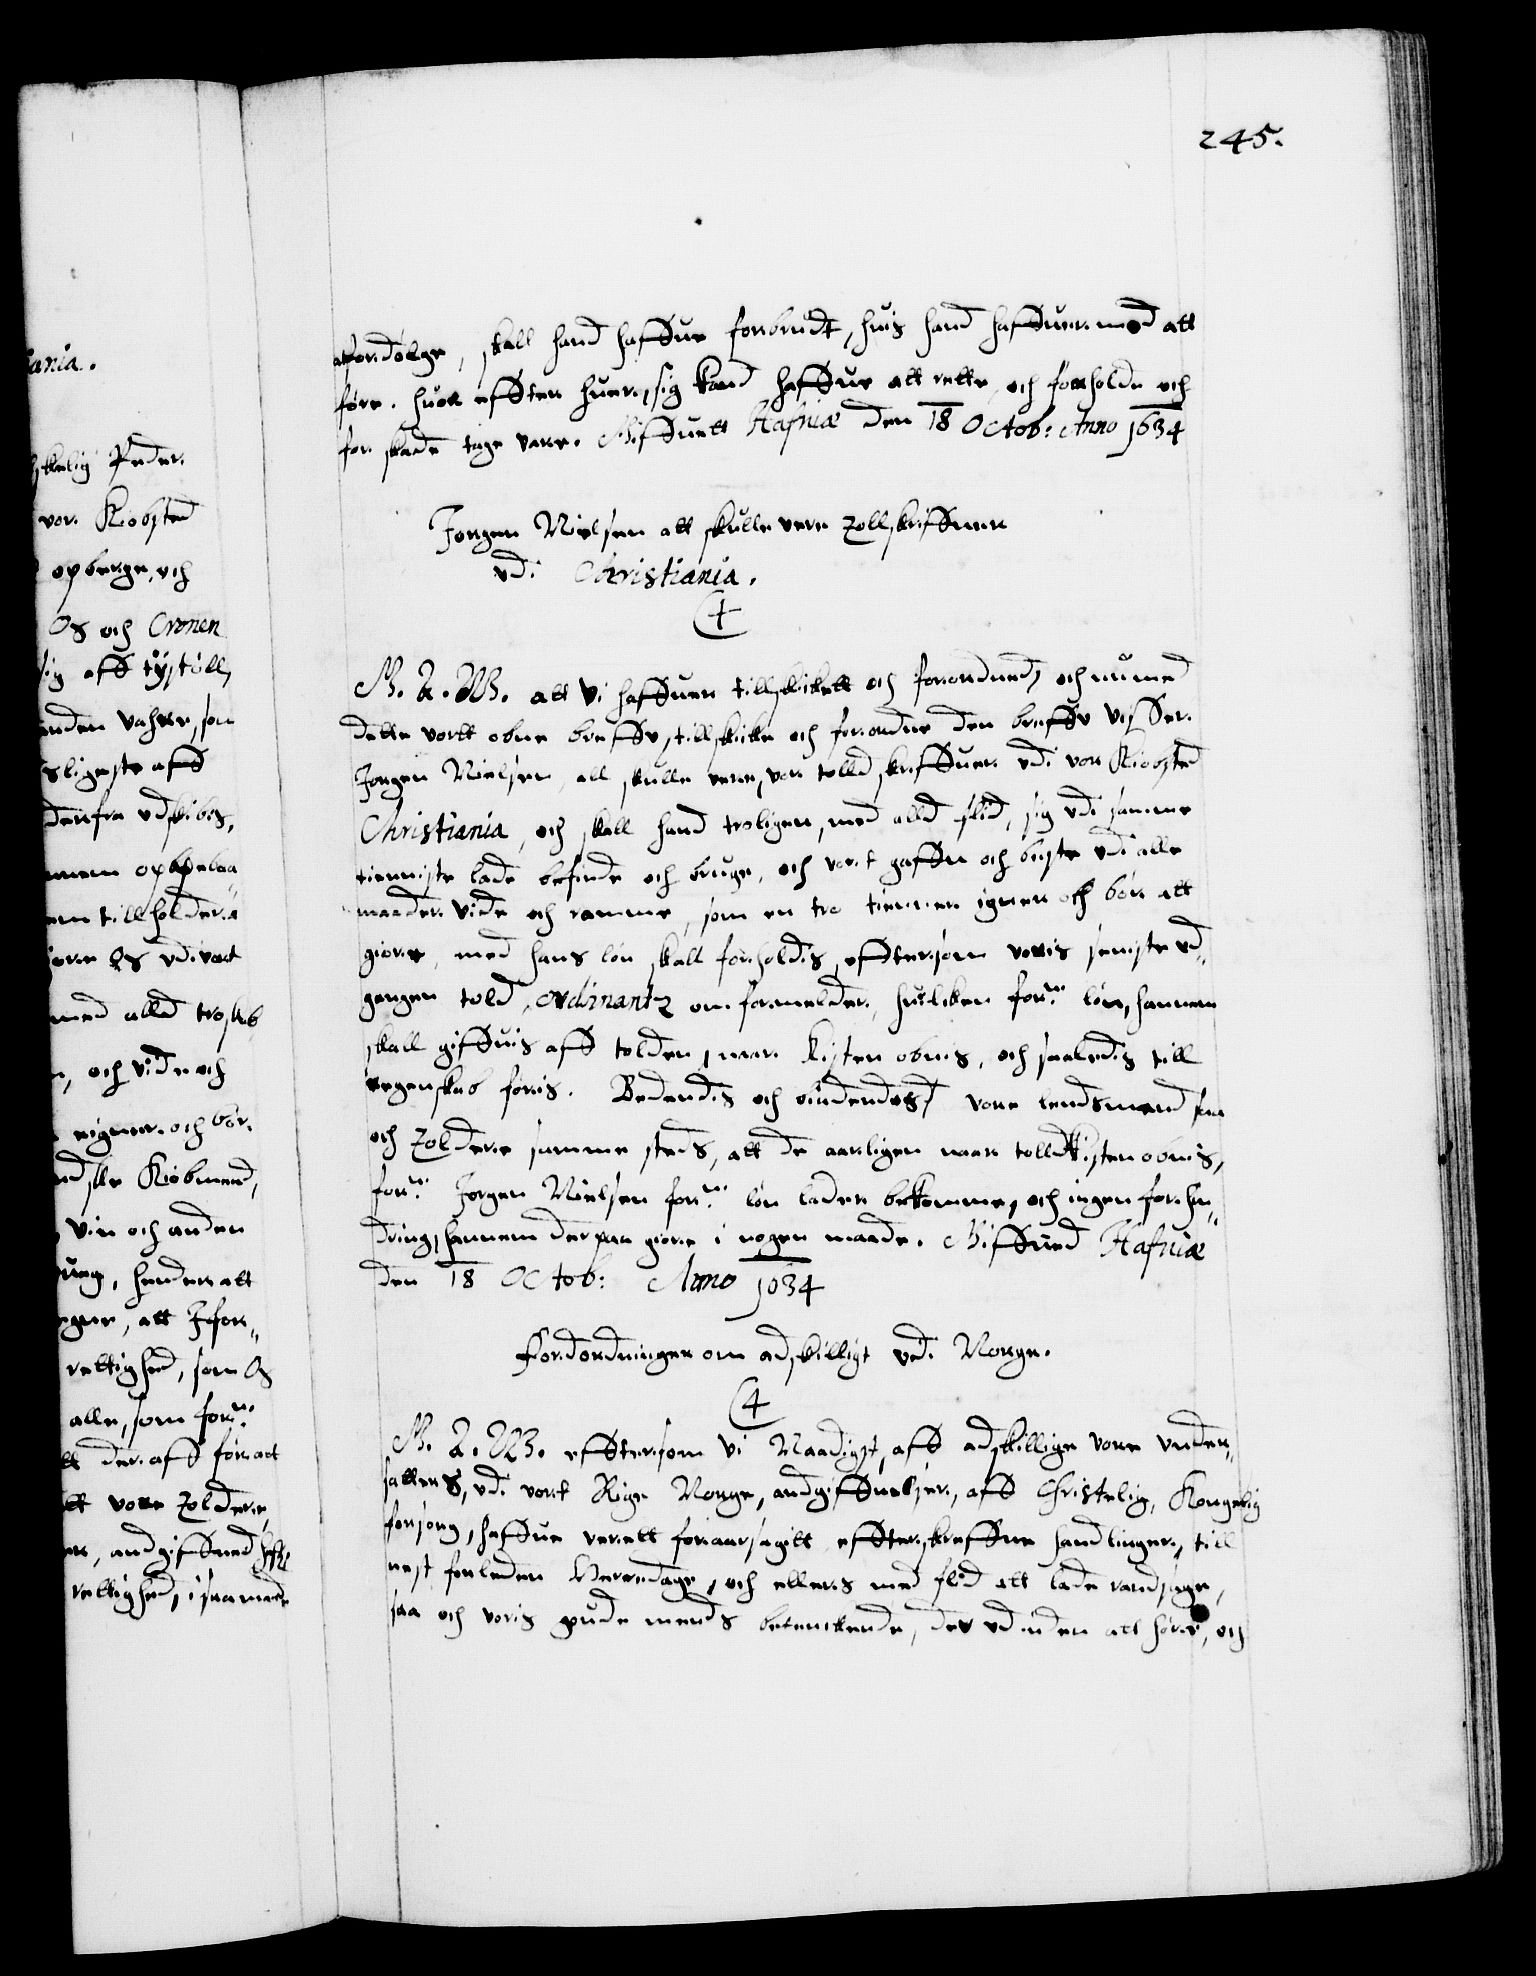 245.
ania.
kelig Peder
vor Kiøbsted
opberge, och
Os och Cronen
sig aff tÿstøll,
anden vahre, som
sligeste aff
derfra vdskibes,
opbebaa,,
till holder
Os vdi vort
med alld troskab
, och vide och
eigner och bør.
ske Kiøbmend,
vin och anden
, hender att
, att Jfor,,
rettighed, som Os
alle, som forne:
der aff føre att
vore Zoldere,
, andgiffued
rettighed, i saa maade
att fordølge, skall hand haffue forbrudt, huis hand haffuer med att
føre. Huor effter huer sig kand haffue att rette och forholde och
for skade tage vare. Giffuett Hafniæ den 18 Octob: Anno 1634
Jørgen Nielsen att skulle vere Zollskriffuer
vdi Christiania.
C4
G. A. W. att Vi haffuer tillskickett och forordned, och nu med
dette vortt obne breff, tillskicke och forordne den breffu viisser
Jørgen Nielsen, att skulle vere, vor tolld skriffuer vdi vor Kiøbsted
Christiania, och skall hand troligen, med alld flid, sig vdi samme
tienniste lade befinde och bruge, och vort gaffn och beste vdi alle
maader vide och ramme, som en tro tienner igner och bør att
giøre, med hans løn skall forholdis, effter som voris seniste vd,,
gangen told ordinantz om formelder, huilcken forne: løn, hannem
skall giffuis aff tolden, naar kisten obnis, och saaledis till
regenskab føris. Bedendis och biudendes, vore lendsmand
och Zoldere samme steds, att de aarligen naar tolldkisten obnis,
forne: Jørgen Nielsen forne: løn lader bekomme, och ingen forhin,,
dring, hannem der paa giøre i nogen maade. Giffued Hafniæ
den 18 Octob: Anno 1634
Forordninger om adskilligt vdi Norge.
C4
G. A. W. effter som Vi Naadigst, aff adskillige vore vnder,,
satters, vdi vort Rige Norge, andgiffuelser, aff Christelig, Kongelig
forsorg, haffue verett foraarsagitt effterskreffne handlinger, till
nest forleden Herredage, och ellers med flid att lade randsage,
saa och voris gude mends betenckende, der vdinden att høre, och